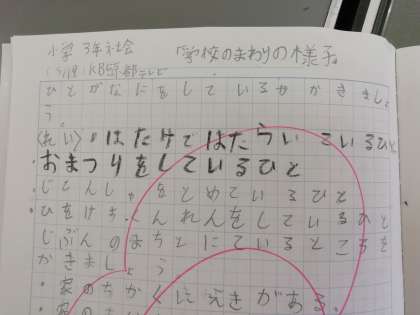 小学 3年社会 「学校のまわりの様子」
KBS京都テレビ
ひとがなにをしているかかきましょ
う。
〈れい〉・はたけではたらいているひと
・おまつりをしているひと
・じてんしゃをとめているひと
・ひをけすくんれんをしているひと
じぶんのまちとにているところを
かきましょう。
・家のちかくにえきがある。